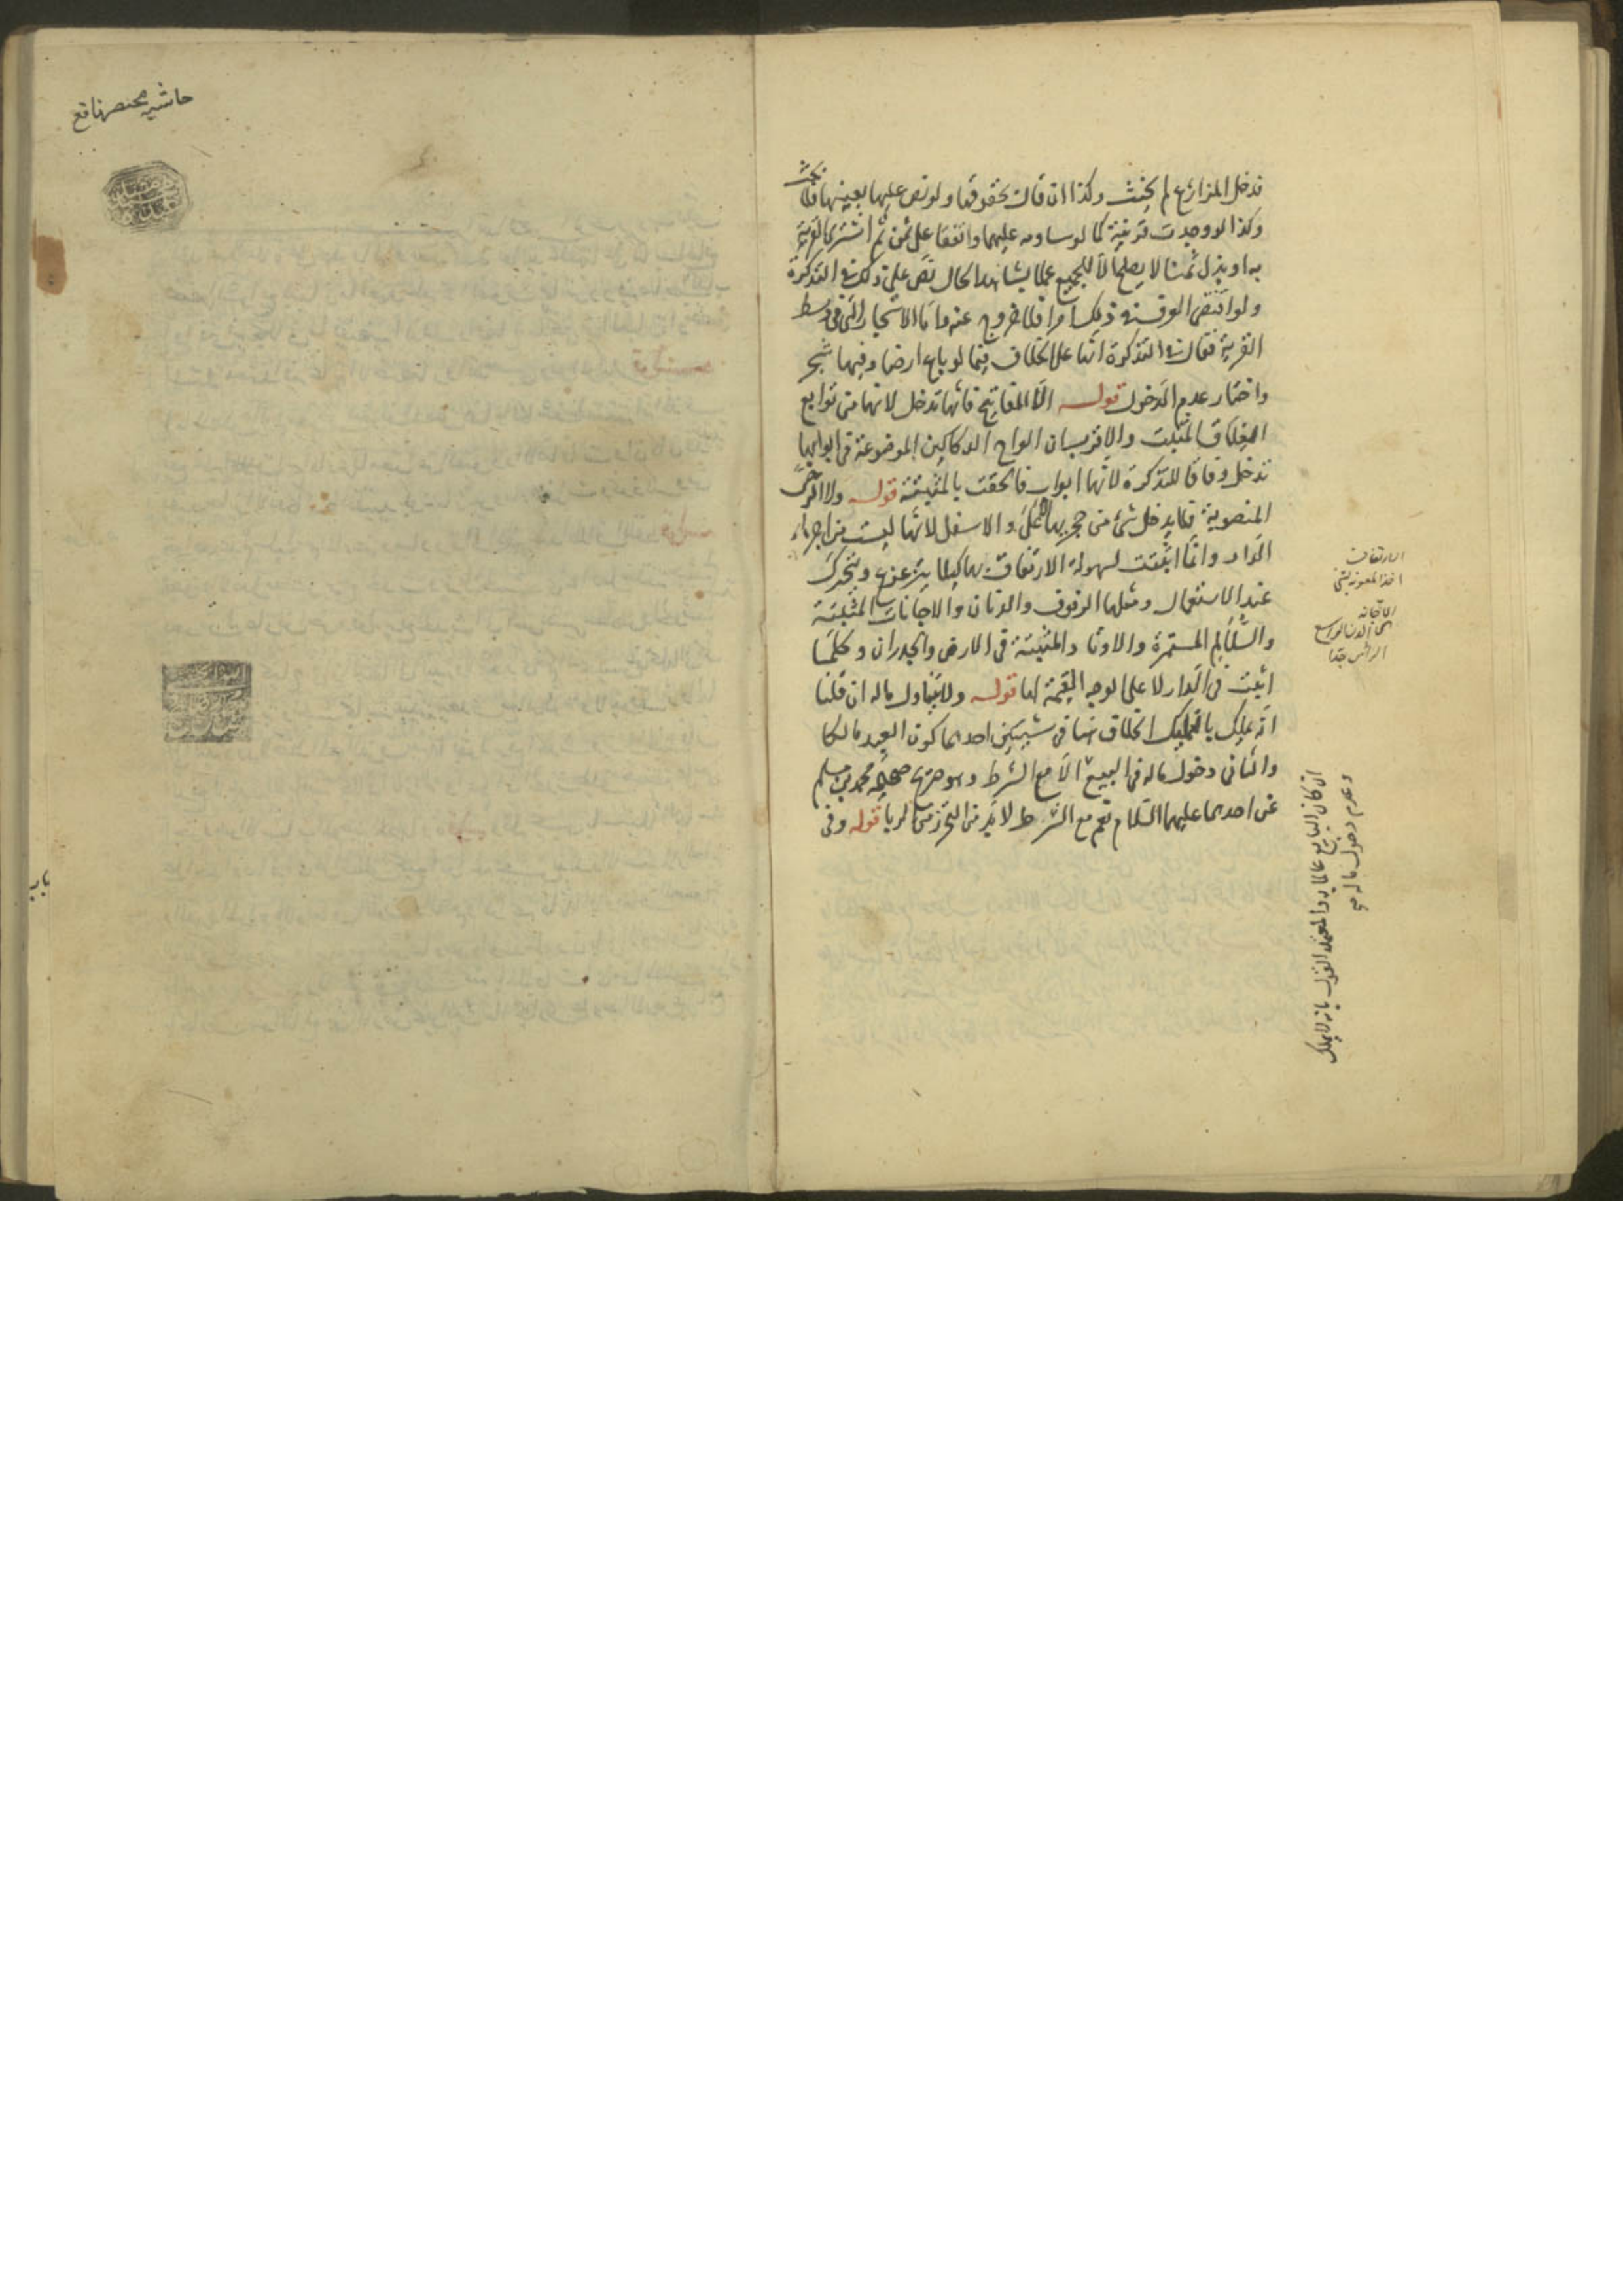 تدخل المزارع لم يحنث وكذا ان قال بحقوقها ولو نص عليها بعينها فلا بحث
وكذا لو وجدت قرينة كما لو ساومه عليهما واتفقا على ثمن ثم اشترى القرية
به او بذل ثمنا لا يصلح الا للجميع عملا بشاهد الحال نص على ذلك في التذكرة
ولو اقتضى العرف في ذلك امرا فلا خروج عنه واما الاشجار التي في وسط
القرية فقال في التذكرة انها على الخلاف فيما لو باع ارضا وفيها شجر
واختار عدم الدخول قوله الا المفاتيح فانها تدخل لانها من توابع
المغلاق المثبت والاقرب ان الواح الدكاكين الموضوعة في ابوابها
تدخل وفاقا للتذكرة لانها ابواب فالحقت بالمثبتة قوله ولا الرحى
المنصوبة فلا يدخل شئ من حجريها الاعلى والاسفل لانها ليست من اجزاء
الدار وانما اثبتت لسهولة الارتفاق بها كيلا يتزعزع ويتحرك
عند الاستعمال ومثلها الرفوف والدنان والاجانات المثبتة
والسلالم المستمرة والاوتاد المثبتة في الارض والجدران وكلما
اثبت في الدار لا على الوجه التتمة لها قوله ولا يتناول ماله ان قلنا
انه يملك بالتمليك الخلاف هنا في شيئين احدهما كون العبد مالكا
والثاني دخول ماله في البيع الا مع الشرط وهو صريح صحيحة محمد بن مسلم
عن احدهما عليهما السلام نعم مع الشرط لا بد من التحرز من الربا قوله وفى
الارتفاق
اخذ المعونة بشئ
الاجانة
الدن الواسع
الراس جدا
ان كان البايع عالما به والمعتمد القول بانه لا يملك
وعدم دخول ماله
حاشيه مختصر نافع